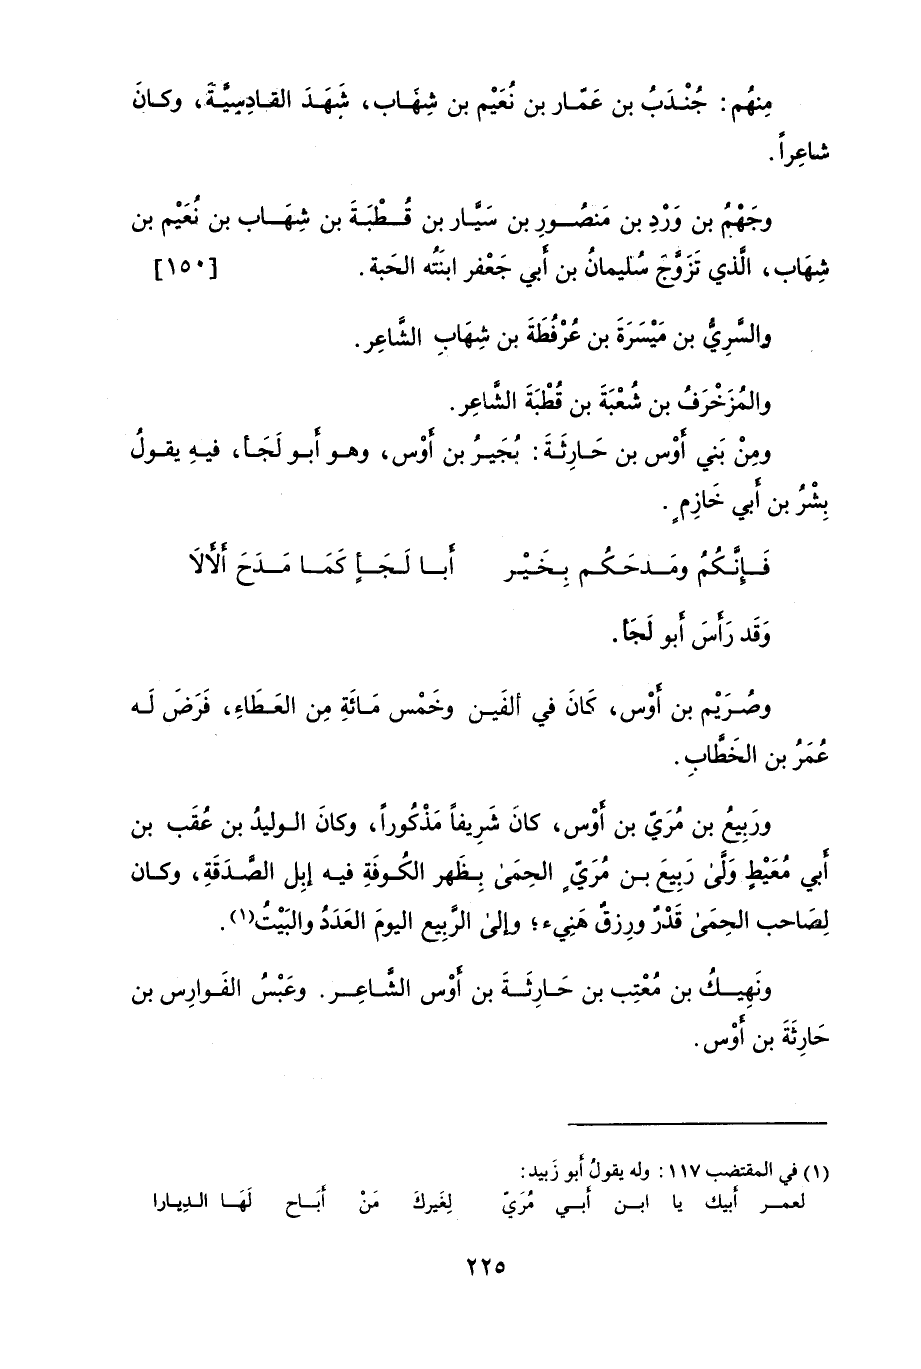 مِنهُم : جُنْدَبُ بن عَمّار بن نُعَيْم بن شِهَاب، شَهَدَ القادِسِيَّةَ، وكانَ
شاعِراً.
وجَهْمُ بن وَرْدِ بن مَنصُورِ بن سَيَّار بن قُطْبَةَ بن شِهَاب بن نُعَيْم بن
شِهَاب، الَّذي تَزَوَّجَ سُليمانُ بن أبي جَعْفر ابنَتُه الحَبة . [١٥٠]
والسَّرِيُّ بن مَيْسَرَةَ بن عُرْفُطَةَ بن شِهَابِ الشَّاعِر.
والمُزَخْرَفُ بن شُعْبَةَ بن قُطْبَةَ الشَّاعِر.
ومِنْ بَني أَوْس بن حَارِثَةَ : بُجَيرُ بن أَوْس، وهو أبو لَجَأ، فيهِ يقولُ
بِشْرُ بن أَبي خَازِمٍ .
فَإِنَّكُمُ ومَدحَكُم بِخَيْر أَبا لَجَأٍ كَمَا مَدَحَ أَلَالَا
وَقَد رَأَسَ أَبو لَجَأ.
وصُرَيْم بن أَوْس، كَانَ في ألفَين وخَمْس مَائَةِ مِن العَطَاءِ، فَرَضَ لَه
عُمَرُ بن الخَطَّابِ.
ورَبِيعُ بن مُرَيّ بن أَوْس، كانَ شَرِيفاً مَذْكُوراً، وكانَ الوليدُ بن عُقَب بن
أَبي مُعَيْطٍ وَلَّىٰ رَبِيعَ بن مُرَيٍّ الحِمَىٰ بِظَهر الكُوفَةِ فيه إبِل الصَّدَقَةِ، وكان
لِصَاحب الحِمَىٰ قَدْرٌ ورِزقٌ هَنِيء؛ وإلىٰ الرَّبِيع اليومَ العَدَدُ والبَيْتُ(١).
ونَهِيكُ بن مُعْتِب بن حَارِثَةَ بن أَوْس الشَّاعِر. وعَبْسُ الفَوارِس بن
حَارِثَةَ بن أَوْس.
(١) في المقتضب ١١٧ : وله يقولُ أبو زَبيد:
لعمر أبيك يا ابن أبي مُرَيّ لِغَيركَ مَنْ أَبَاح لَهَا الدِيارا
٢٢٥